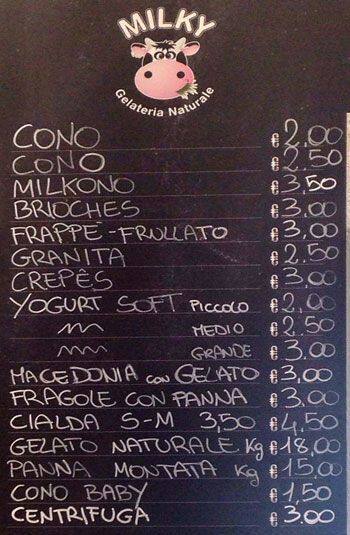 MILKY
Gelateria Naturale
CONO € 2,00
CONO € 2.50
MILKONO € 3,50
BRIOCHES € 3,00
FRAPPE-FRULLATO € 3,00
GRANITA € 2.50
CREPÊS € 3,00
YOGURT SOFT PICCOLO € 2,00
MEDIO € 2.50
GRANDE € 3.00
MACEDONIA con GELATO € 3,00
FRAGOLE CON PANNA € 3,00
CIALDA S-M 3,50 € 4,50
GELATO NATURALE Kg € 18,00
PANNA MONTATA Kg € 15,00
CONO BABY € 1,50
CENTRIFUGA € 3.00